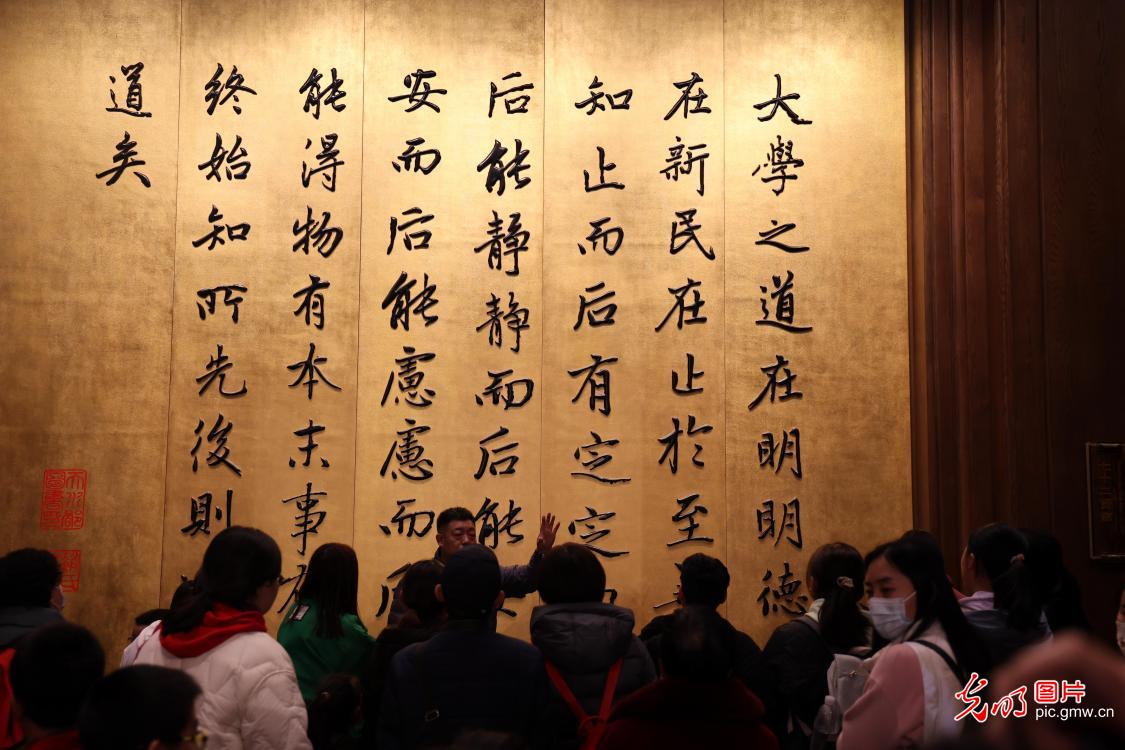 大學之道在明明德
在新民在止於至善
知止而后有定定而
后能静静而后能
安而后能慮慮而后
能得物有本末事有
終始知所先後則
道矣
天水郡
圖書印
趙氏
光明图片
pic.gmw.cn